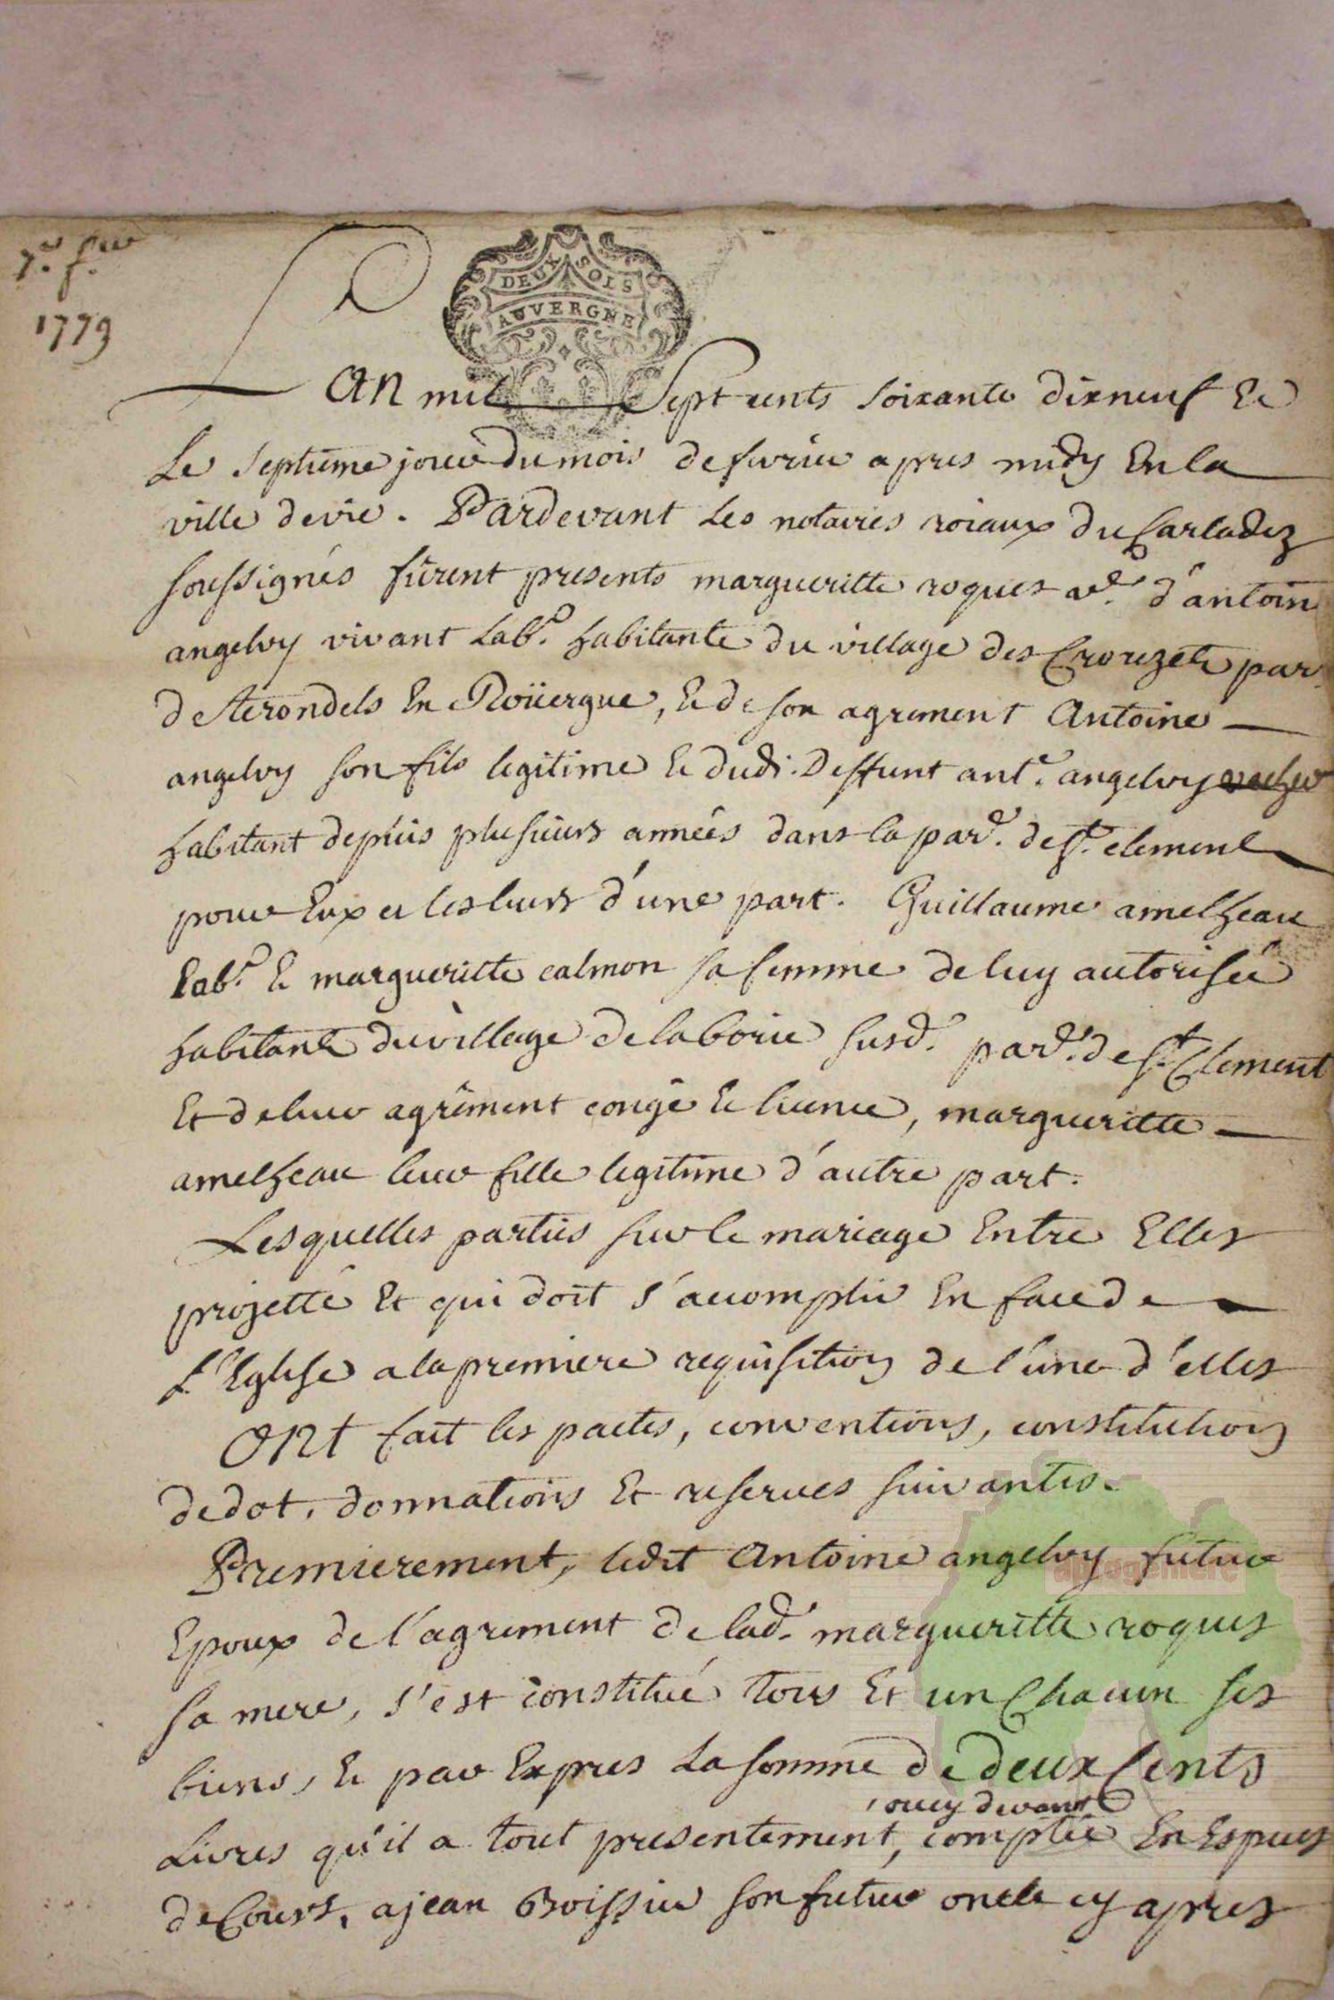 7.e f.er
1779
DEUX SOLS
AUVERGNE
L'an mil Sept cents soixante dixneuf Et
Le septieme jour du mois de fevrier apres midy En la
ville de vic. Pardevant Les notaires roiaux du Carladez
soussignés fûrent presents margueritte roques v.e d'antoine
angelvy vivant Lab.r habitante du village des Crouzets par.
de Terondels En Roüergue, Et de son agrement Antoine
angelvy son fils legitime Et dudi. Deffunt ant.e angelvy
habitant depuis plusieurs années dans la par.e de s.t clement
pour Eux et les leurs d'une part. Guillaume amelheau
Lab.r Et margueritte calmon sa femme de luy autorisée
habitants du village de laborie susd. par.e de s.t Clement
Et de leur agrément congé Et licence, margueritte
amelheau leur fille legitime d'autre part.
Lesquelles parties sur le mariage Entre Elles
projetté Et qui doit s'accomplir En face de
L'Eglise a la premiere requisition de l'une d'elles
ont fait les pactes, conventions, constitution
de dot, donnations Et reserves suivantes.
Premierement, ledit Antoine angelvy futur
Epoux de l'agrement de lad. margueritte roques
sa mere, s'est constitué tous Et un Chacun ses
biens, Et par Expres La somme de deux Cents
, ou cy devant
Livres qu'il a tout presentement, comptée En Especes
de Cours, a jean Boissieu son futur oncle cy apres
aprogenière